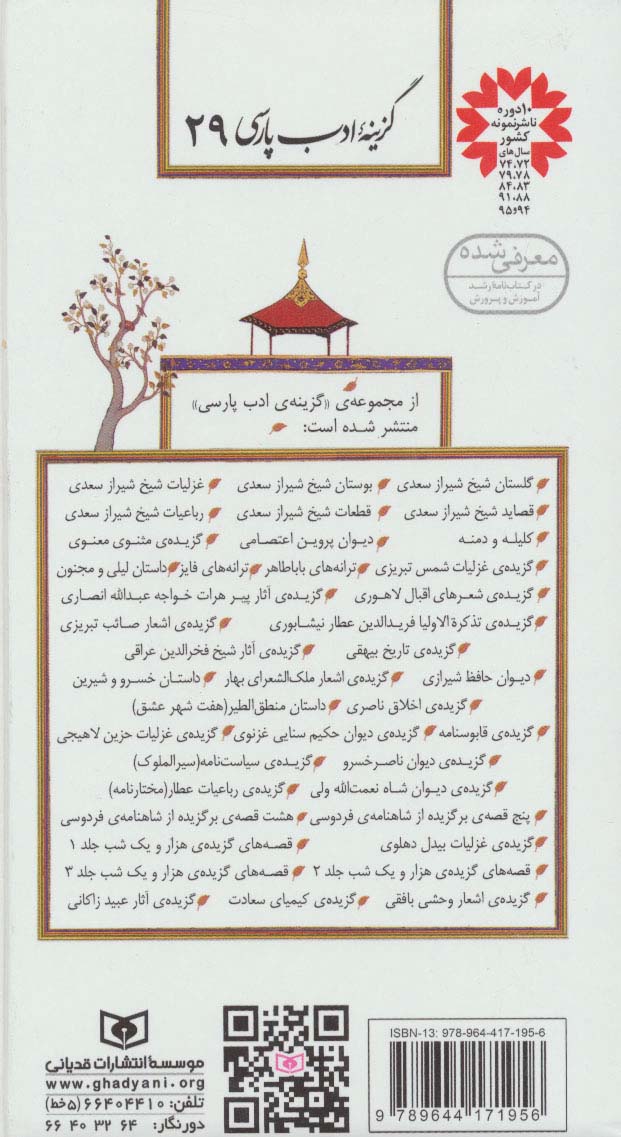 گزینهٔ ادب پارسی ۲۹
۱۰ دوره
ناشر نمونه
کشور
سال‌های
۷۴،۷۲
۷۹،۷۸
۸۴،۸۳
۹۱،۸۸
۹۴و۹۵
معرفی شده
در کتاب‌نامهٔ رشد
آموزش و پرورش
از مجموعه‌ی «گزینه‌ی ادب پارسی»
منتشر شده است:
گلستان شیخ شیراز سعدی بوستان شیخ شیراز سعدی غزلیات شیخ شیراز سعدی
قصاید شیخ شیراز سعدی قطعات شیخ شیراز سعدی رباعیات شیخ شیراز سعدی
کلیله و دمنه دیوان پروین اعتصامی گزیده‌ی مثنوی معنوی
گزیده‌ی غزلیات شمس تبریزی ترانه‌های باباطاهر ترانه‌های فایز داستان لیلی و مجنون
گزیده‌ی شعرهای اقبال لاهوری گزیده‌ی آثار پیر هرات خواجه عبدالله انصاری
گزیده‌ی تذکرة الاولیا فریدالدین عطار نیشابوری گزیده‌ی اشعار صائب تبریزی
گزیده‌ی تاریخ بیهقی گزیده‌ی آثار شیخ فخرالدین عراقی
دیوان حافظ شیرازی گزیده‌ی اشعار ملک‌الشعرای بهار داستان خسرو و شیرین
گزیده‌ی اخلاق ناصری داستان منطق‌الطیر(هفت شهر عشق)
گزیده‌ی قابوسنامه گزیده‌ی دیوان حکیم سنایی غزنوی گزیده‌ی غزلیات حزین لاهیجی
گزیده‌ی دیوان ناصرخسرو گزیده‌ی سیاست‌نامه(سیرالملوک)
گزیده‌ی دیوان شاه نعمت‌الله ولی گزیده‌ی رباعیات عطار(مختارنامه)
پنج قصه‌ی برگزیده از شاهنامه‌ی فردوسی هشت قصه‌ی برگزیده از شاهنامه‌ی فردوسی
گزیده‌ی غزلیات بیدل دهلوی قصه‌های گزیده‌ی هزار و یک شب جلد ۱
قصه‌های گزیده‌ی هزار و یک شب جلد ۲ قصه‌های گزیده‌ی هزار و یک شب جلد ۳
گزیده‌ی اشعار وحشی بافقی گزیده‌ی کیمیای سعادت گزیده‌ی آثار عبید زاکانی
موسسهٔ انتشارات قدیانی
www.ghadyani.org
تلفن: ۶۶۴۰۴۴۱۰ (۵خط)
دورنگار: ۶۶ ۴۰ ۳۲ ۶۴
ISBN-13: 978-964-417-195-6
9 789644 171956